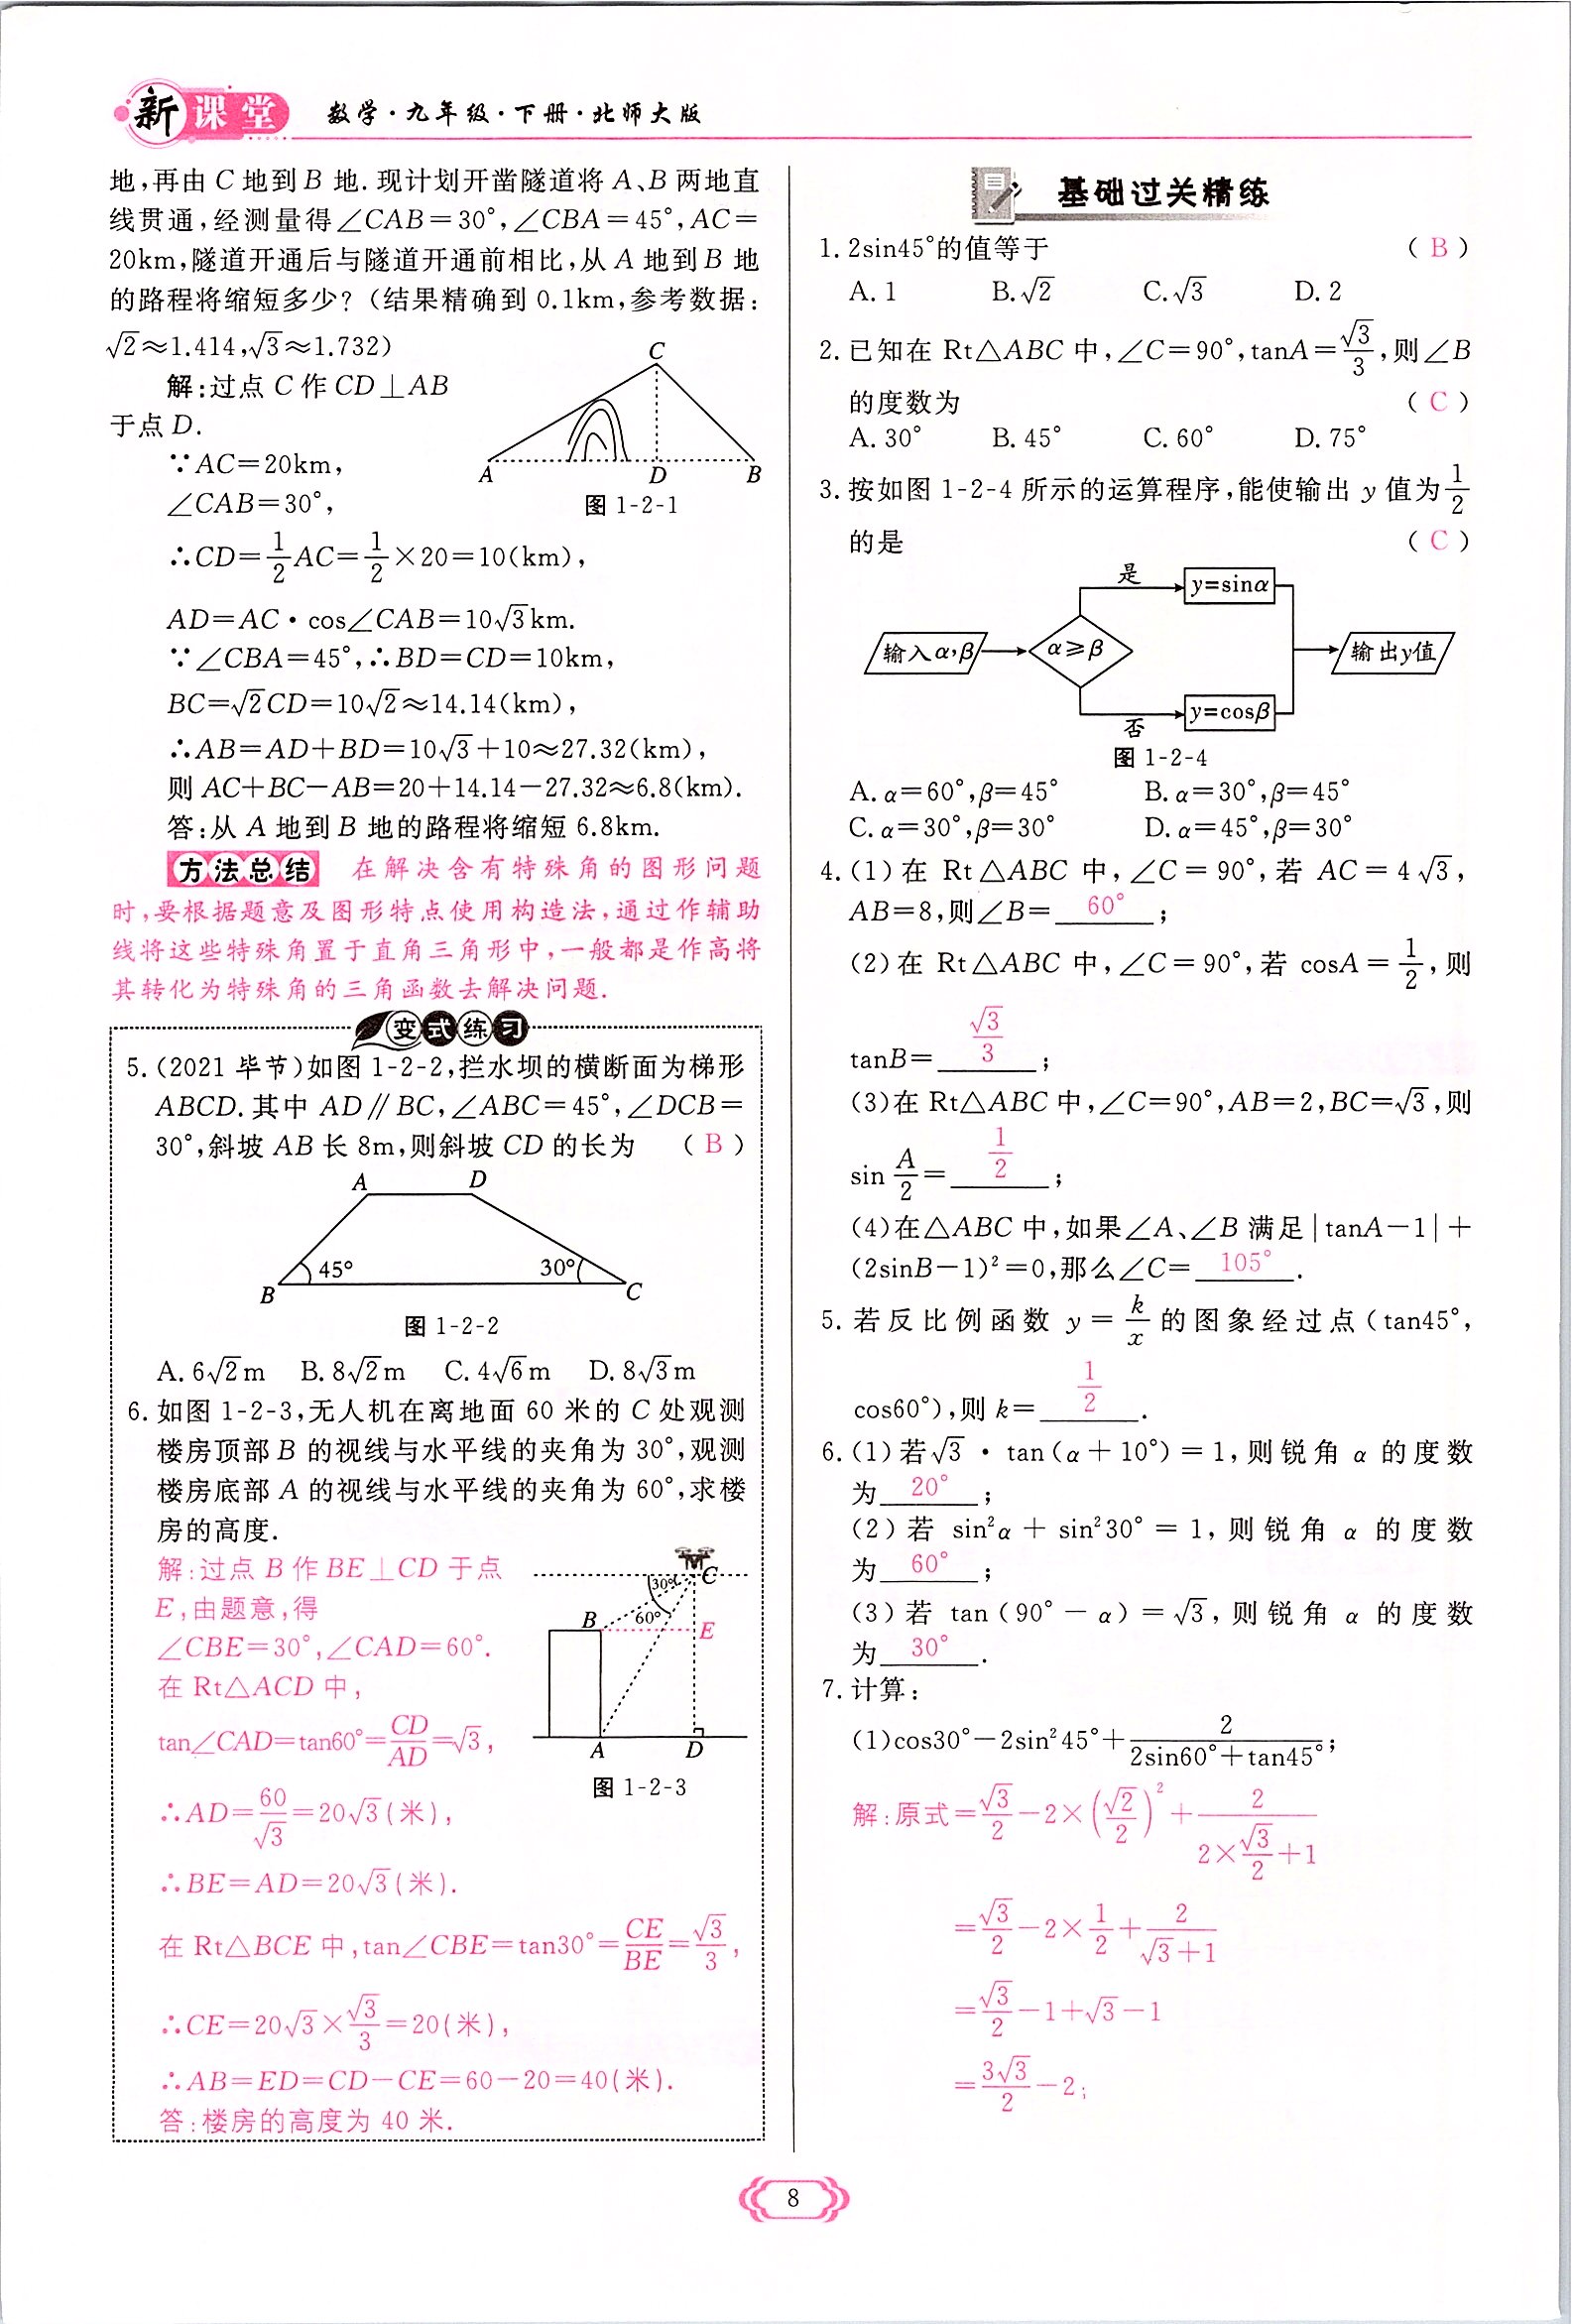 新课堂 数学·九年级·下册·北师大版
地,再由 C 地到 B 地. 现计划开凿隧道将 A、B 两地直
线贯通,经测量得∠CAB=30°,∠CBA=45°,AC=
20km,隧道开通后与隧道开通前相比,从 A 地到 B 地
的路程将缩短多少?(结果精确到 0.1km,参考数据:
√2≈1.414,√3≈1.732)
解:过点 C 作 CD⊥AB
于点 D.
∵AC=20km,
∠CAB=30°,
C
A
D
B
图 1-2-1
∴CD=1/2AC=1/2×20=10(km),
AD=AC·cos∠CAB=10√3km.
∵∠CBA=45°,∴BD=CD=10km,
BC=√2CD=10√2≈14.14(km),
∴AB=AD+BD=10√3+10≈27.32(km),
则 AC+BC-AB=20+14.14-27.32≈6.8(km).
答:从 A 地到 B 地的路程将缩短 6.8km.
方法总结 在解决含有特殊角的图形问题
时,要根据题意及图形特点使用构造法,通过作辅助
线将这些特殊角置于直角三角形中,一般都是作高将
其转化为特殊角的三角函数去解决问题.
变式练习
5.(2021 毕节)如图 1-2-2,拦水坝的横断面为梯形
ABCD. 其中 AD∥BC,∠ABC=45°,∠DCB=
30°,斜坡 AB 长 8m,则斜坡 CD 的长为 ( B )
A D
45° 30°
B C
图 1-2-2
A. 6√2m B. 8√2m C. 4√6m D. 8√3m
6. 如图 1-2-3,无人机在离地面 60 米的 C 处观测
楼房顶部 B 的视线与水平线的夹角为 30°,观测
楼房底部 A 的视线与水平线的夹角为 60°,求楼
房的高度.
解:过点 B 作 BE⊥CD 于点
E,由题意,得
∠CBE=30°,∠CAD=60°.
在 Rt△ACD 中,
tan∠CAD=tan60°=CD/AD=√3,
30° C
B 60° E
A D
图 1-2-3
∴AD=60/√3=20√3(米),
∴BE=AD=20√3(米).
在 Rt△BCE 中,tan∠CBE=tan30°=CE/BE=√3/3,
∴CE=20√3×√3/3=20(米),
∴AB=ED=CD-CE=60-20=40(米).
答:楼房的高度为 40 米.
基础过关精练
1. 2sin45°的值等于 ( B )
A. 1 B. √2 C. √3 D. 2
2. 已知在 Rt△ABC 中,∠C=90°,tanA=√3/3,则∠B
的度数为 ( C )
A. 30° B. 45° C. 60° D. 75°
3. 按如图 1-2-4 所示的运算程序,能使输出 y 值为1/2
的是 ( C )
是 y=sinα
输入α,β α≥β 输出y值
否 y=cosβ
图 1-2-4
A. α=60°,β=45° B. α=30°,β=45°
C. α=30°,β=30° D. α=45°,β=30°
4.(1)在 Rt△ABC 中,∠C=90°,若 AC=4√3,
AB=8,则∠B=60°;
(2)在 Rt△ABC 中,∠C=90°,若 cosA=1/2,则
tanB=√3/3;
(3)在 Rt△ABC 中,∠C=90°,AB=2,BC=√3,则
sin A/2=1/2;
(4)在△ABC 中,如果∠A、∠B 满足|tanA-1|+
(2sinB-1)²=0,那么∠C=105°.
5. 若反比例函数 y=k/x 的图象经过点(tan45°,
cos60°),则 k=1/2.
6.(1)若√3·tan(α+10°)=1,则锐角 α 的度数
为20°;
(2)若 sin²α+sin²30°=1,则锐角 α 的度数
为60°;
(3)若 tan(90°-α)=√3,则锐角 α 的度数
为30°.
7. 计算:
(1)cos30°-2sin²45°+2/(2sin60°+tan45°);
解:原式=√3/2-2×(√2/2)²+2/(2×√3/2+1)
=√3/2-2×1/2+2/(√3+1)
=√3/2-1+√3-1
=3√3/2-2;
8